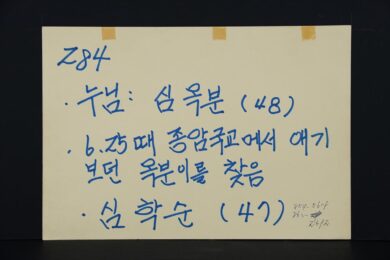 284
· 누님: 심옥분 (48)
· 6.25때 종암국교에서 애기
보던 옥분이를 찾음
· 심학순 (47)